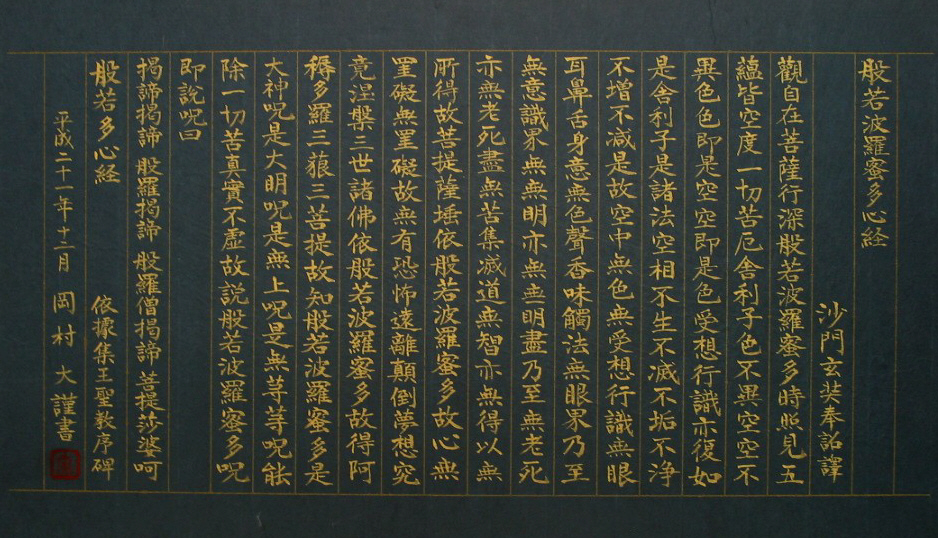 般若波羅蜜多心経
沙門玄奘奉詔譯
觀自在菩薩行深般若波羅蜜多時照見五
蘊皆空度一切苦厄舍利子色不異空空不
異色色即是空空即是色受想行識亦復如
是舍利子是諸法空相不生不滅不垢不净
不增不減是故空中無色無受想行識無眼
耳鼻舌身意無色聲香味觸法無眼界乃至
無意識界無無明亦無無明盡乃至無老死
亦無老死盡無苦集滅道無智亦無得以無
所得故菩提薩埵依般若波羅蜜多故心無
罣礙無罣礙故無有恐怖遠離顛倒夢想究
竟涅槃三世諸佛依般若波羅蜜多故得阿
耨多羅三藐三菩提故知般若波羅蜜多是
大神呪是大明呪是無上呪是無等等呪能
除一切苦真實不虛故說般若波羅蜜多呪
即說呪曰
揭諦揭諦 般羅揭諦 般羅僧揭諦 菩提莎婆呵
般若多心経 依據集王聖教序碑
平成二十一年十二月 岡村 大 謹書